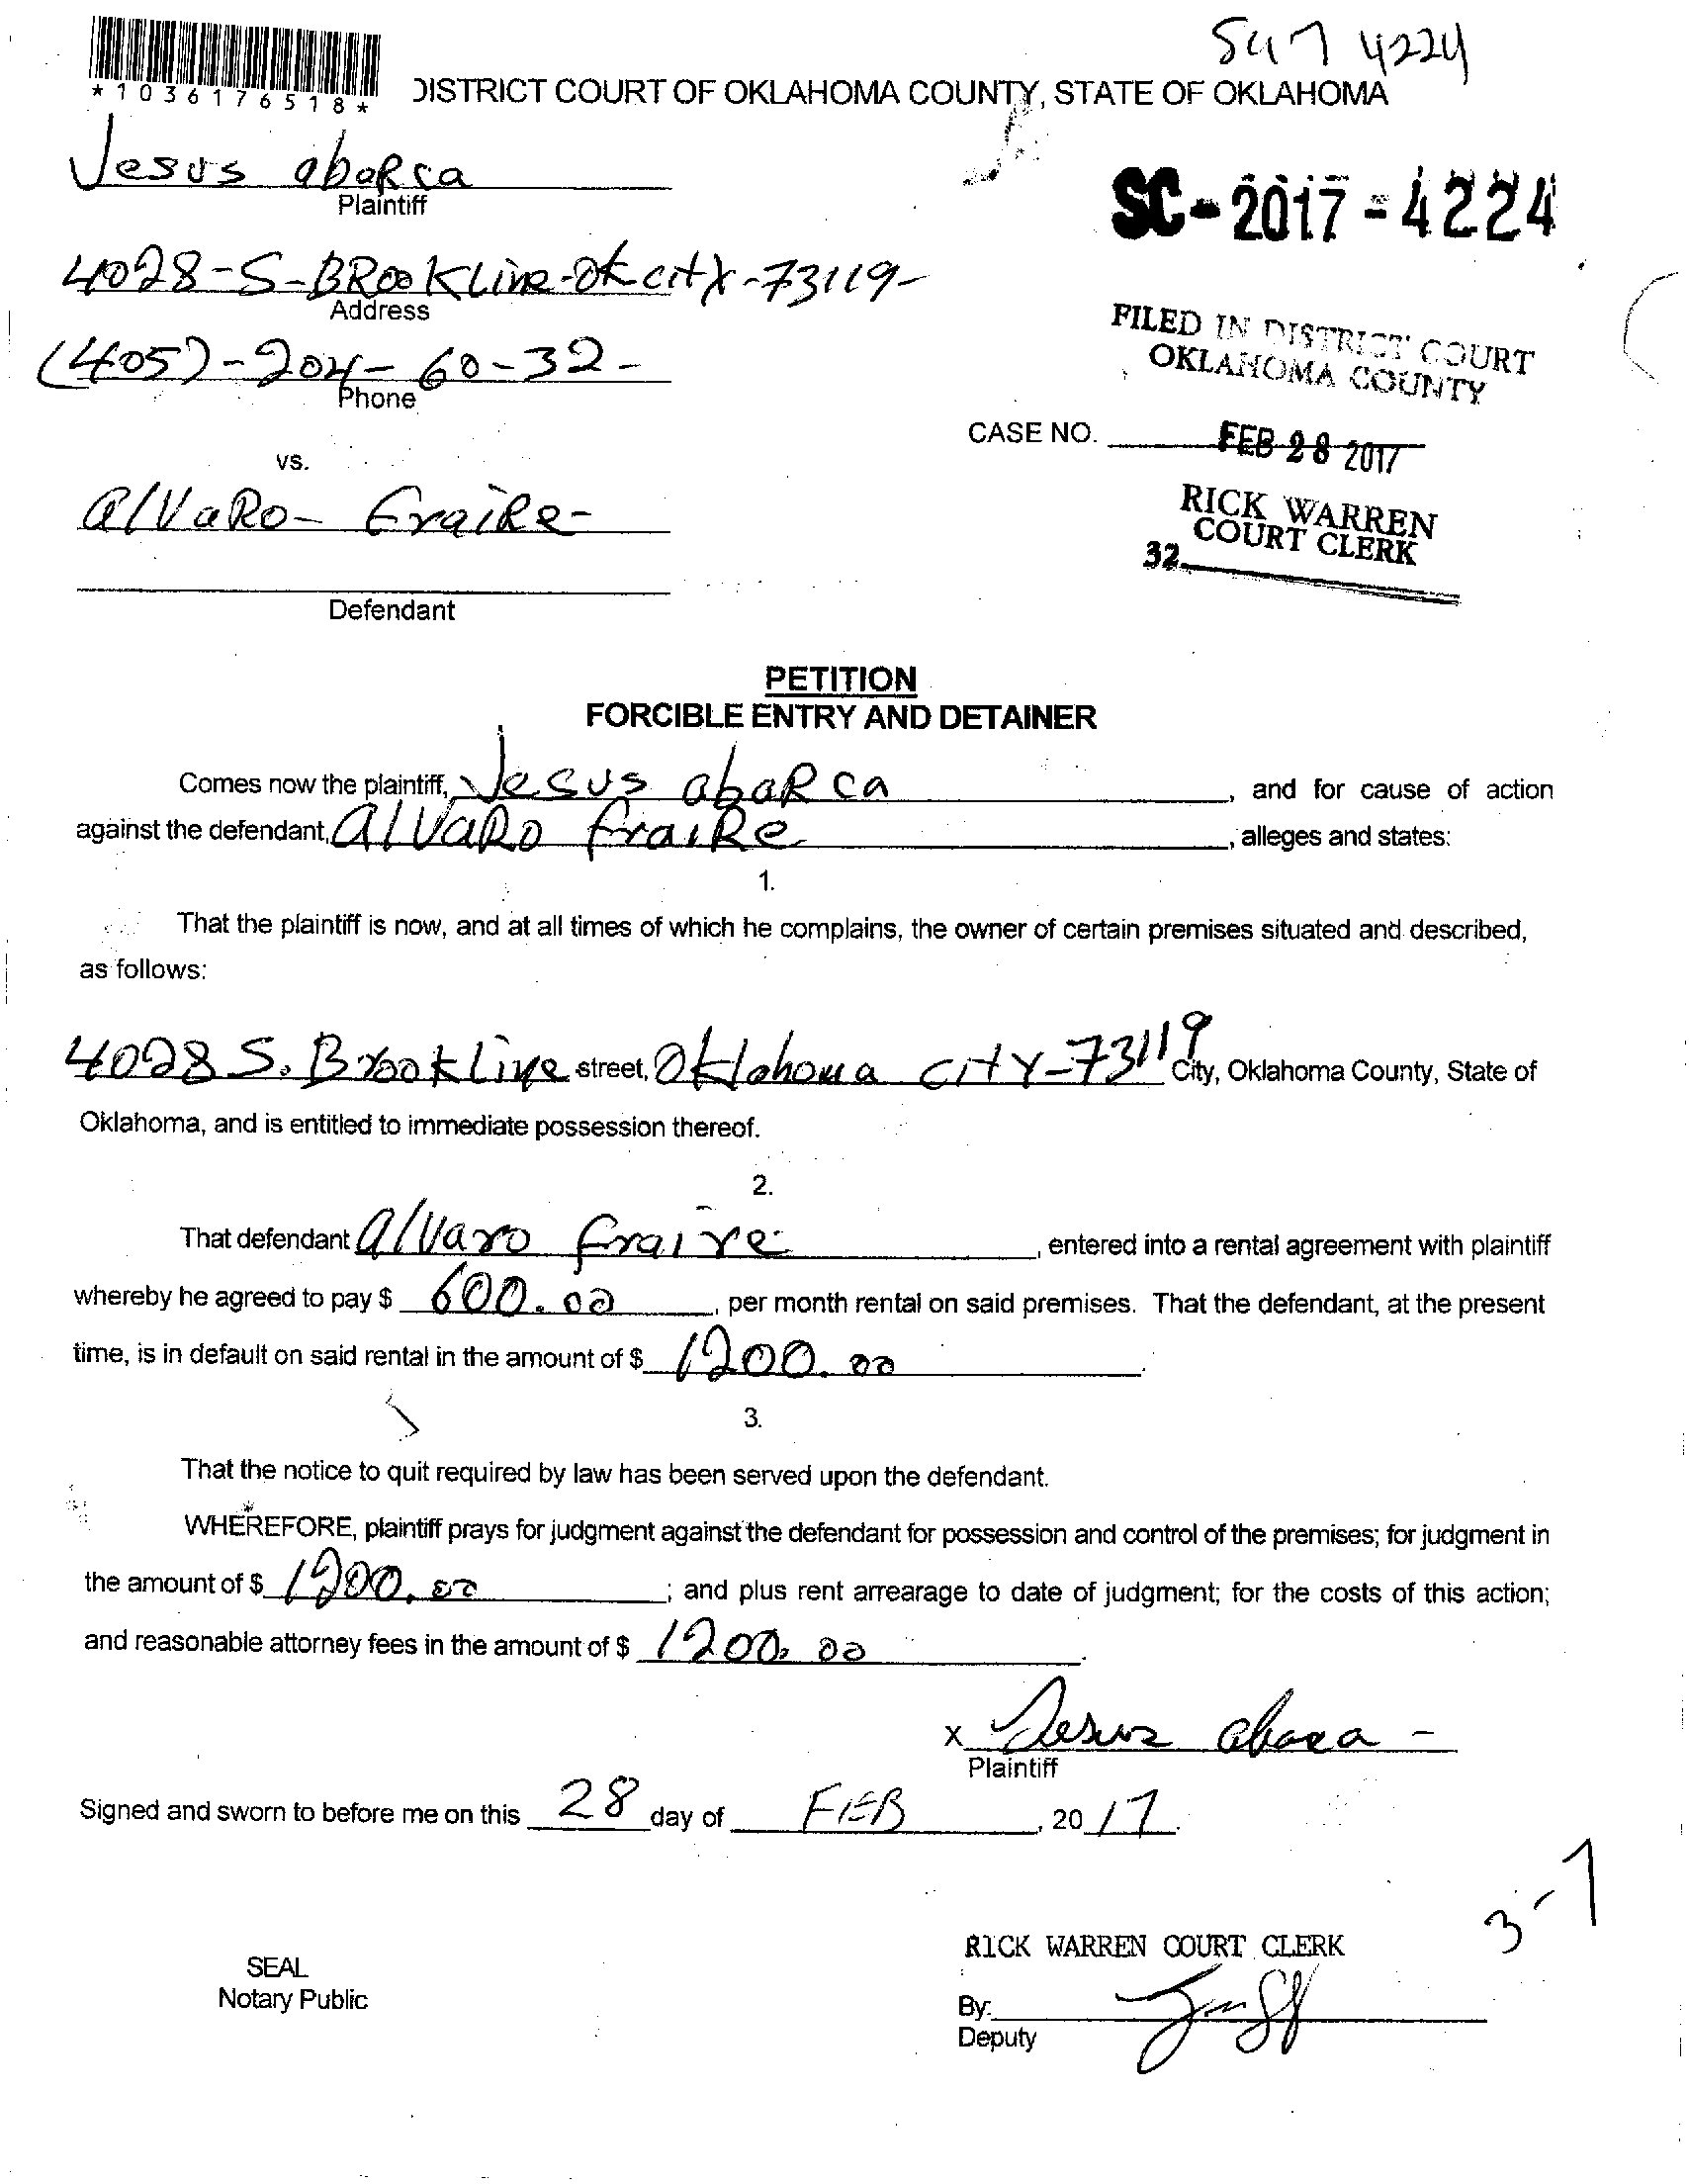 SC17 4224
*1036176518*
DISTRICT COURT OF OKLAHOMA COUNTY, STATE OF OKLAHOMA
Jesus abaRca
Plaintiff
SC-2017-4224
4028-S-BRooKLine-Ok citY-73119-
Address
FILED IN DISTRICT COURT
OKLAHOMA COUNTY
(405)-204-60-32-
Phone
CASE NO.
FEB 28 2017
vs.
RICK WARREN
COURT CLERK
alVaRo- FraiRe-
32
Defendant
PETITION
FORCIBLE ENTRY AND DETAINER
Comes now the plaintiff, Jesus abaRca, and for cause of action
against the defendant, alVaRo fraiRe, alleges and states:
1.
That the plaintiff is now, and at all times of which he complains, the owner of certain premises situated and described,
as follows:
4028 S. BrookLine street, Oklahoma citY-73119 City, Oklahoma County, State of
Oklahoma, and is entitled to immediate possession thereof.
2.
That defendant alVaro fraire, entered into a rental agreement with plaintiff
whereby he agreed to pay $ 600.00, per month rental on said premises. That the defendant, at the present
time, is in default on said rental in the amount of $ 1200.00.
3.
That the notice to quit required by law has been served upon the defendant.
WHEREFORE, plaintiff prays for judgment against the defendant for possession and control of the premises; for judgment in
the amount of $ 1200.00; and plus rent arrearage to date of judgment; for the costs of this action;
and reasonable attorney fees in the amount of $ 1200.00.
x Jesus abarca -
Plaintiff
Signed and sworn to before me on this 28 day of FEB, 2017.
3-7
RICK WARREN COURT CLERK
SEAL
Notary Public
By:
Deputy